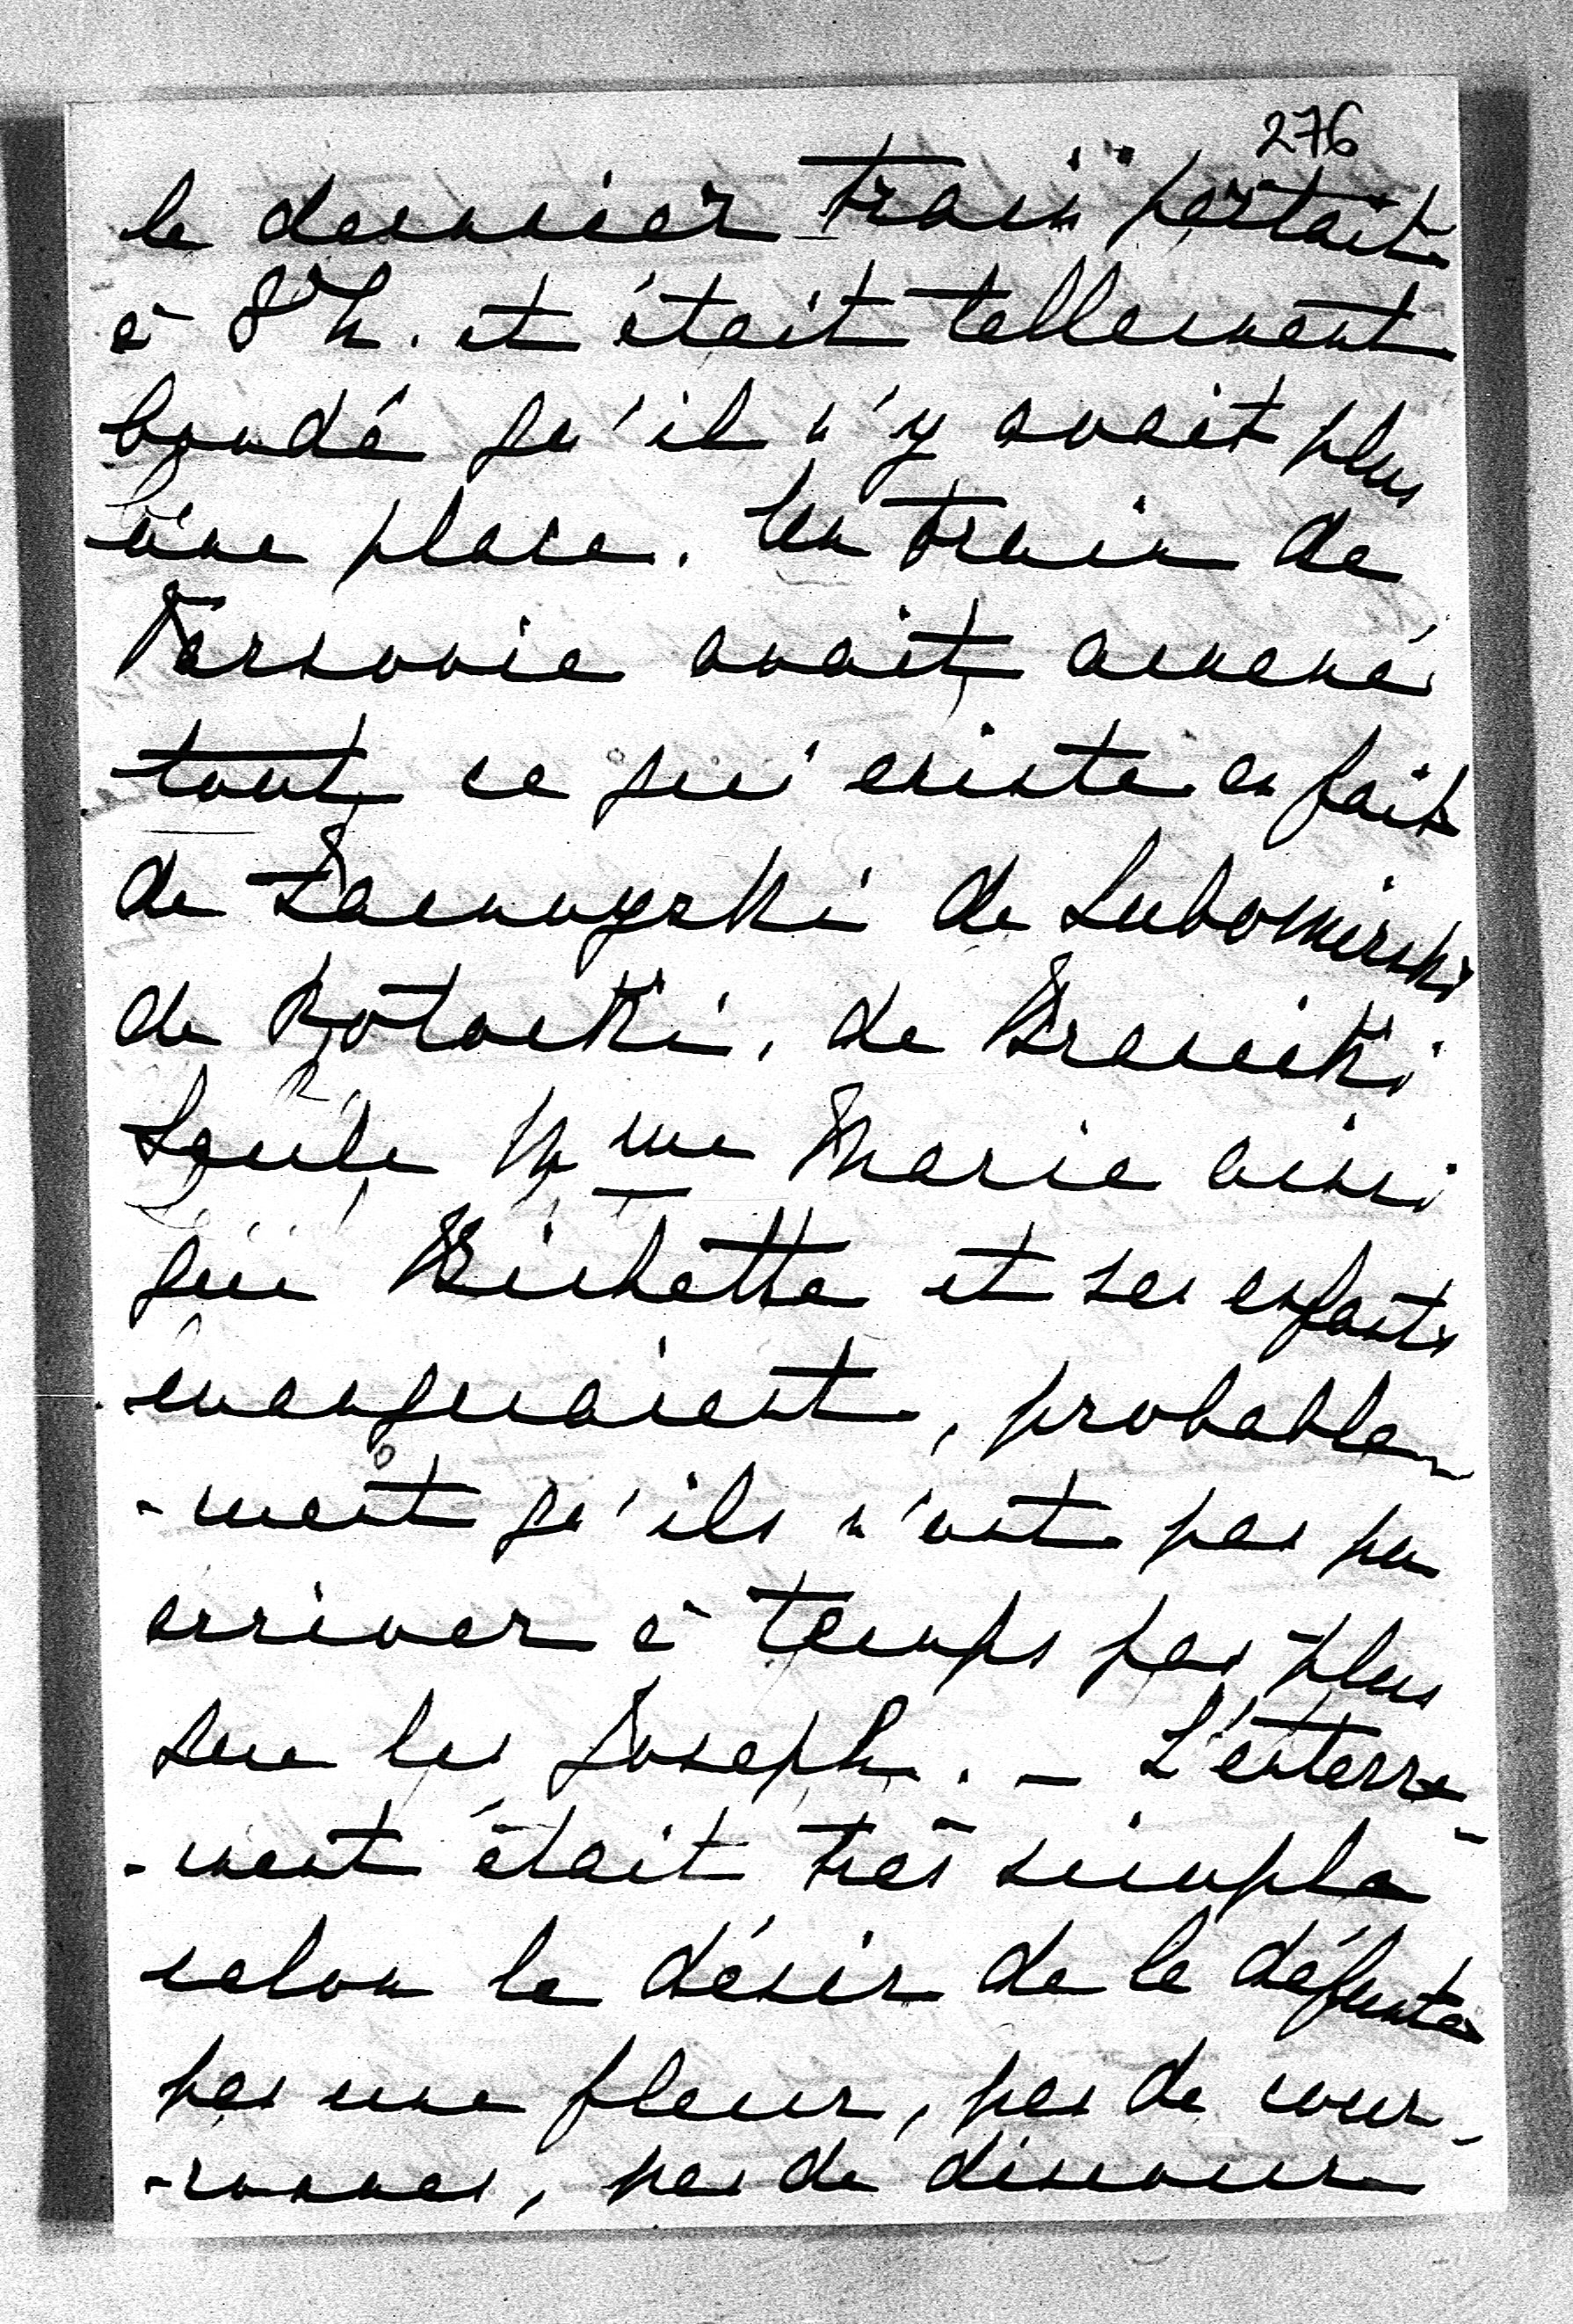 276
le dernier train partait
à 8 h. et était tellement
bondé qu'il n'y avait plus
une place. Un train de
Varsovie avait amené
tout ce qui existe en fait
de Zamoyski de Lubomirski
de Potocki, de Branicki
Seule Mme Marie ainsi
que Bichette et ses enfants
manquaient, probable-
-ment qu'ils n'ont pas pu
arriver à temps pas plus
que les Joseph. – L'enterre-
-ment était très simple
selon le désir de la défunte
pas une fleur, pas de cour-
-ronnes, pas de discour